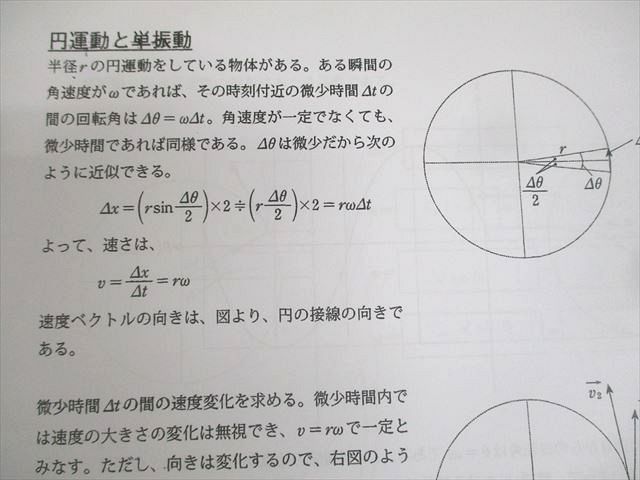 円運動と単振動
半径rの円運動をしている物体がある。ある瞬間の
角速度がωであれば、その時刻付近の微少時間Δtの
間の回転角はΔθ=ωΔt。角速度が一定でなくても、
微少時間であれば同様である。Δθは微少だから次の
ように近似できる。
Δx=(r sin Δθ/2)×2≒(r Δθ/2)×2=rωΔt
よって、速さは、
v=Δx/Δt=rω
速度ベクトルの向きは、図より、円の接線の向きで
ある。
微少時間Δtの間の速度変化を求める。微少時間内で
は速度の大きさの変化は無視でき、v=rωで一定と
みなす。ただし、向きは変化するので、右図のよう
r
Δθ/2
Δθ
v₂